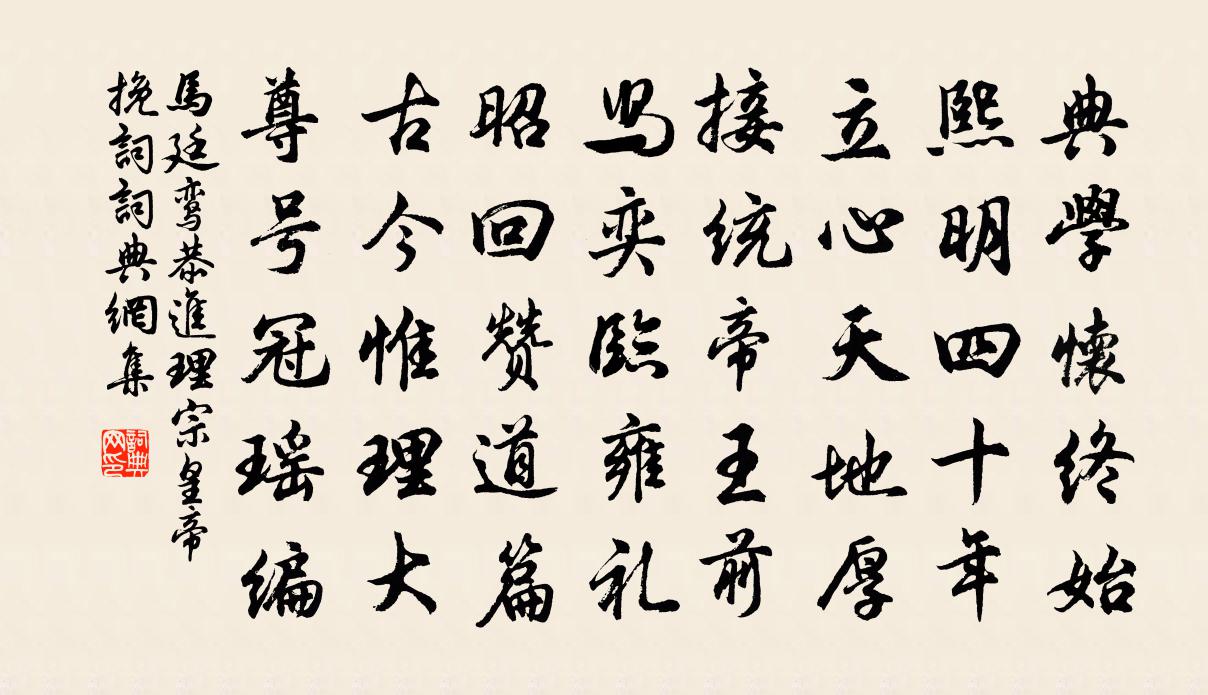 典學懷终始
熙明四十年
立心天地厚
接统帝王前
舄奕臨雍礼
昭回赞道篇
古今惟理大
尊号冠瑶编
馬廷鸾恭進理宗皇帝
挽詞詞典網集
詞典网印